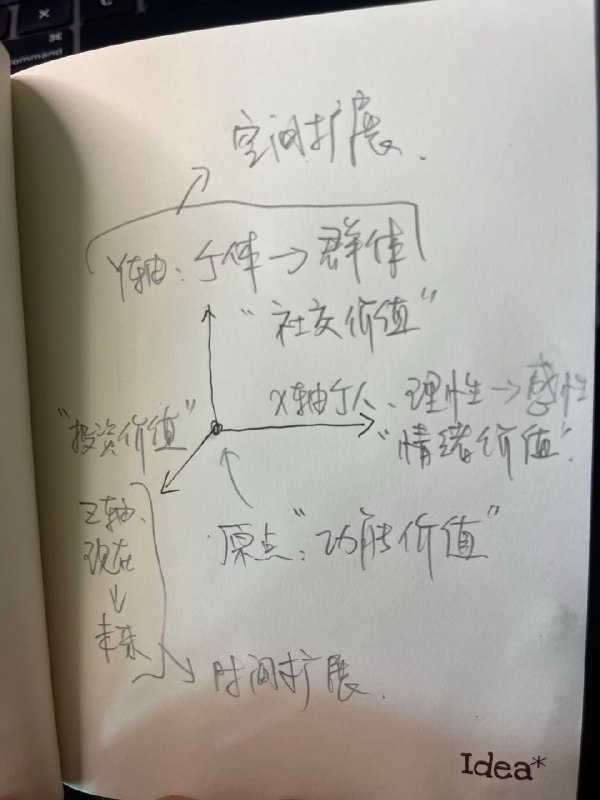 command
空间扩展.
Y轴:个体→群体
"社交价值"
X轴个人、理性→感性
"投资价值"
"情绪价值".
Z轴、
现在
↓
未来
原点:"功能价值"
时间扩展.
Idea*